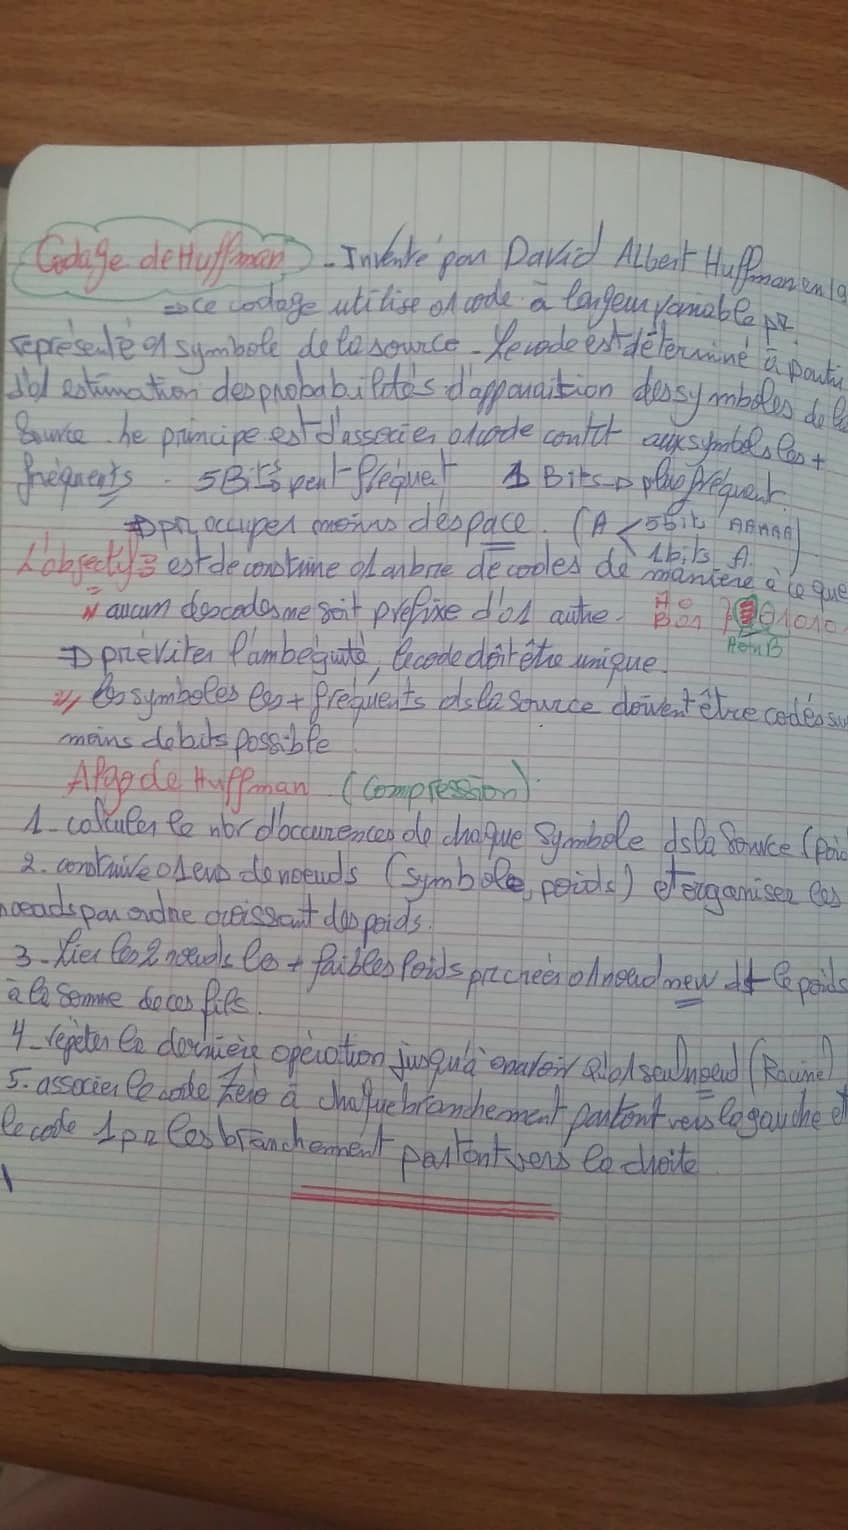 Codage de Huffman - Inventé par David Albert Huffman en 19
⇒ ce codage utilise d1 code à largeur variable pr
représenté d1 symbole de la source - le code est déterminé à partir
d'd1 estimation des probabilités d'apparaition des symboles de la
Source. he principe est d'associer d1 code contt aux symbols les +
fréquents . 5 Bits peut fréquet 1 Bits → plus fréquent.
⇒ pr occuper moins déspace. (A < 5bits AAAAA)
1bits A.
L'objectif : est de construire d1 arbre de codes de manière à ce que
1/ aucun des codes ne soit préfixe d'd1 autre. A 0
B 01 } 01010
A ou B
⇒ pr éviter l'ambeguité, le code doit être unique.
2/ les symboles les + fréquents ds la source doivent être codés su
moins de bits possible
Algo de Huffman (Compression).
1 - calculer le nbr d'occurences de chaque symbole ds la source (poi
2. construire d1 ens de noeuds (symbole, poids) et organiser les
noeuds par ordre croissant des poids.
3 - lier les 2 noeuds les + faibles poids pr créer d1 noeud new dt le poids
à la somme de ces fils.
4 - répéter la dernière opération jusqu'à en avoir qu'd1 seul noeud (Racine)
5. associer le code zéro à chaque branchement partont vers la gauche et
le code 1 pr les branchement partont vers la droite